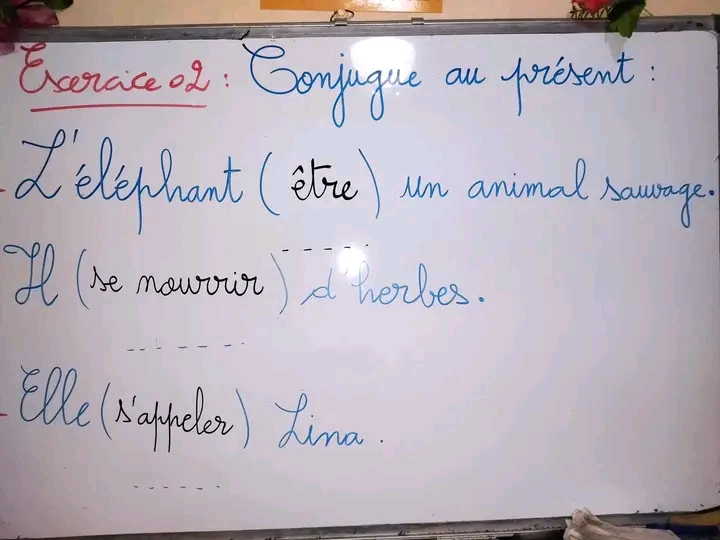 Exercice 02 : Conjugue au présent :
L'éléphant (être) un animal sauvage.
Il (se nourrir) d'herbes.
Elle (s'appeler) Lina.